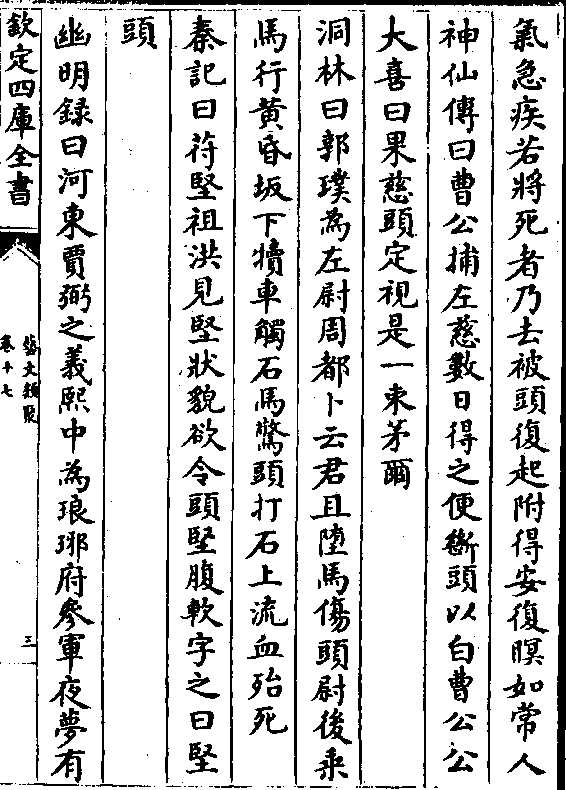 氣急疾若將死者乃去被頭復起附得安復瞑如常人
神仙傳曰曹公捕左慈數日得之便斷頭以白曹公公
大喜曰果慈頭定視是一束茅爾
洞林曰郭璞為左尉周都卜云君且墮馬傷頭尉後乘
馬行黃昏坂下犢車觸石馬驚頭打石上流血殆死
秦記曰苻堅祖洪見堅狀貌欲令頭堅腹軟字之曰堅
頭
幽明録曰河東賈弼之義熙中為琅琊府參軍夜夢有
欽定四庫全書
藝文類聚
卷十七
三